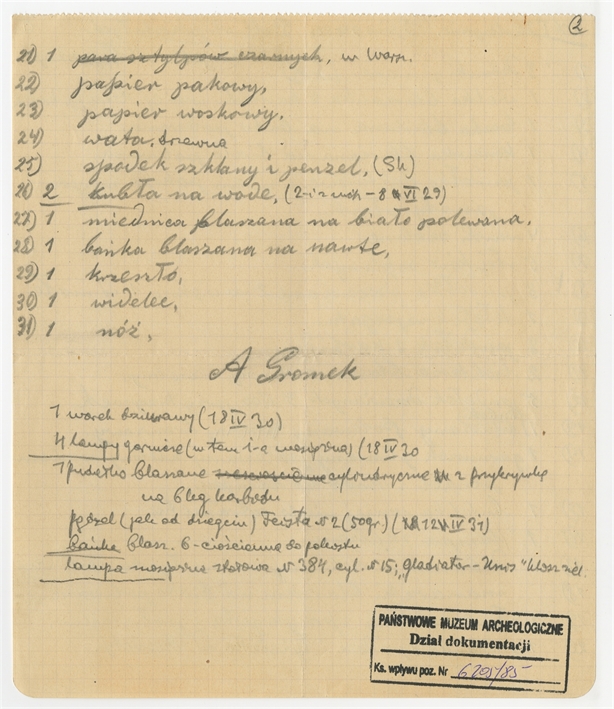 2
21) 1 para sztylpów czarnych, w Warsz.
22) papier pakowy,
23) papier woskowy,
24) wata drzewna
25) spodek szklany i penzel, (Sk)
26) 2 kubła na wodę, (2-i z - 8 VI 29)
27) 1 miednica blaszana na biało polewana,
28) 1 bańka blaszana na naftę,
29) 1 krzesło,
30) 1 widelec,
31) 1 nóż,
A Gromek
1 worek dziurawy (18 IV 30)
4 lampy górnicze (w tem 1-a mosiężna) (18 IV 30
1 pudełko blaszane cylindryczne z przykrywką
na 6 kg karbidu
pęzel (jak od dziegciu) N 2 (50 gr) (12 IV 31)
bańka blasz. 6-ciościenna do pokostu
lampa mosiężna N 384, cyl. N 15; "Gladiator-Unis"
PAŃSTWOWE MUZEUM ARCHEOLOGICZNE
Dział dokumentacji
Ks. wpływu poz. Nr 6205/85